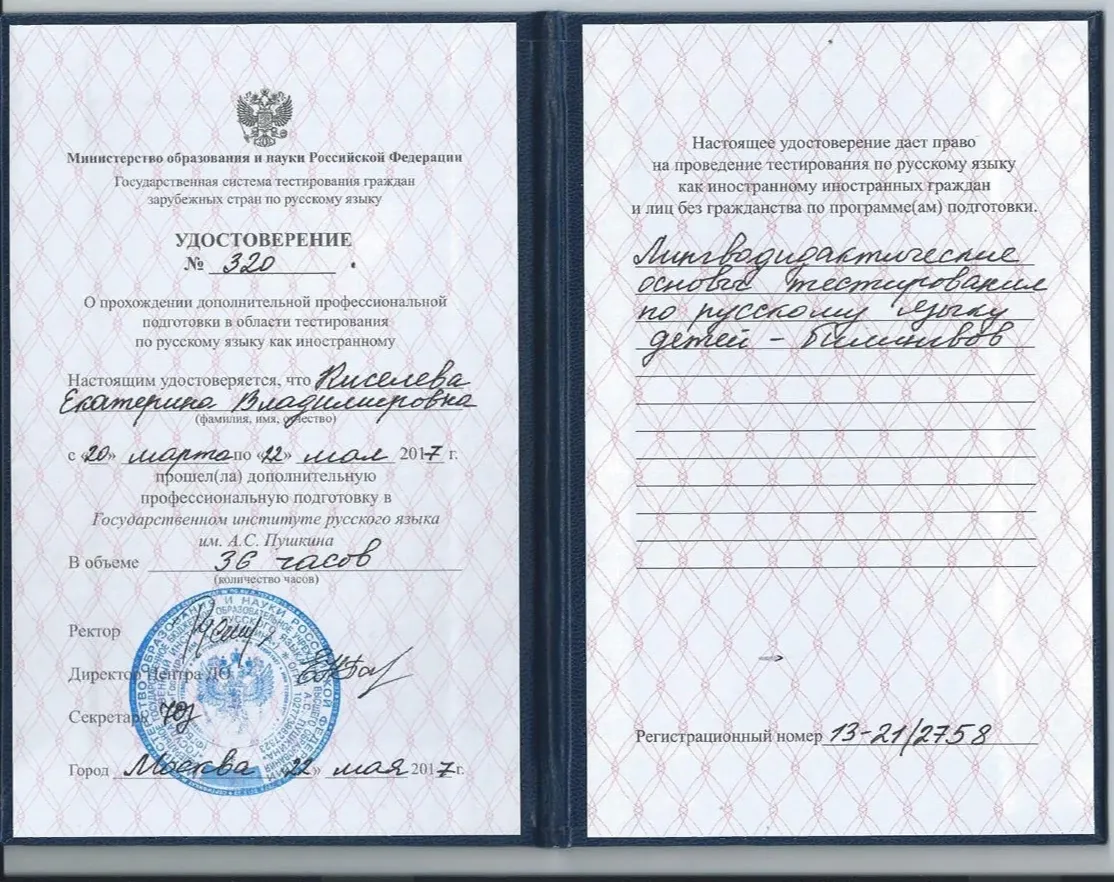 Министерство образования и науки Российской Федерации
Государственная система тестирования граждан
зарубежных стран по русскому языку
УДОСТОВЕРЕНИЕ
№ 320
О прохождении дополнительной профессиональной
подготовки в области тестирования
по русскому языку как иностранному
Настоящим удостоверяется, что Киселева
Екатерина Владимировна
(фамилия, имя, отчество)
с «20» марта по «22» мая 2017 г.
прошел(ла) дополнительную
профессиональную подготовку в
Государственном институте русского языка
им. А.С. Пушкина
В объеме 36 часов
(количество часов)
Ректор
Директор Центра ДО
Секретарь
Город Москва 22» мая 2017 г.
Настоящее удостоверение дает право
на проведение тестирования по русскому языку
как иностранному иностранных граждан
и лиц без гражданства по программе(ам) подготовки.
Лингводидактические
основы тестирования
по русскому языку
детей - билингвов
Регистрационный номер 13-21/2758